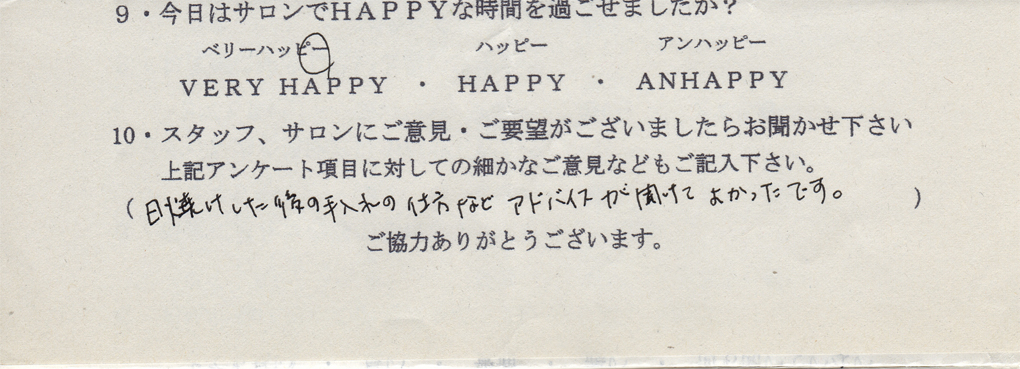 9・今日はサロンでHAPPYな時間を過ごせましたか？
ベリーハッピー　ハッピー　アンハッピー
VERY HAPPY ・ HAPPY ・ ANHAPPY
10・スタッフ、サロンにご意見・ご要望がございましたらお聞かせ下さい
上記アンケート項目に対しての細かなご意見などもご記入下さい。
（日焼けした後の手入れの仕方など アドバイスが聞けて よかったです。）
ご協力ありがとうございます。